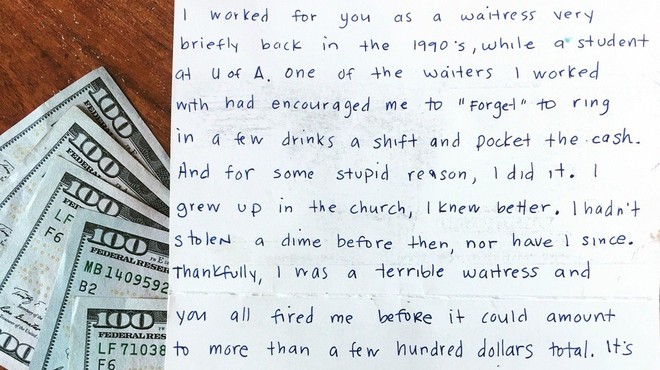 I worked for you as a waitress very
briefly back in the 1990's, while a student
at U of A. One of the waiters I worked
with had encouraged me to "Forget" to ring
in a few drinks a shift and pocket the cash.
And for some stupid reason, I did it. I
grew up in the church, I knew better. I hadn't
stolen a dime before then, nor have I since.
Thankfully, I was a terrible waitress and
you all fired me before it could amount
to more than a few hundred dollars total. It's
100
100
100
LF
F6
100
FEDERAL RESER
MB1409592
B2
100
FEDERAL RES
LF71038
F6